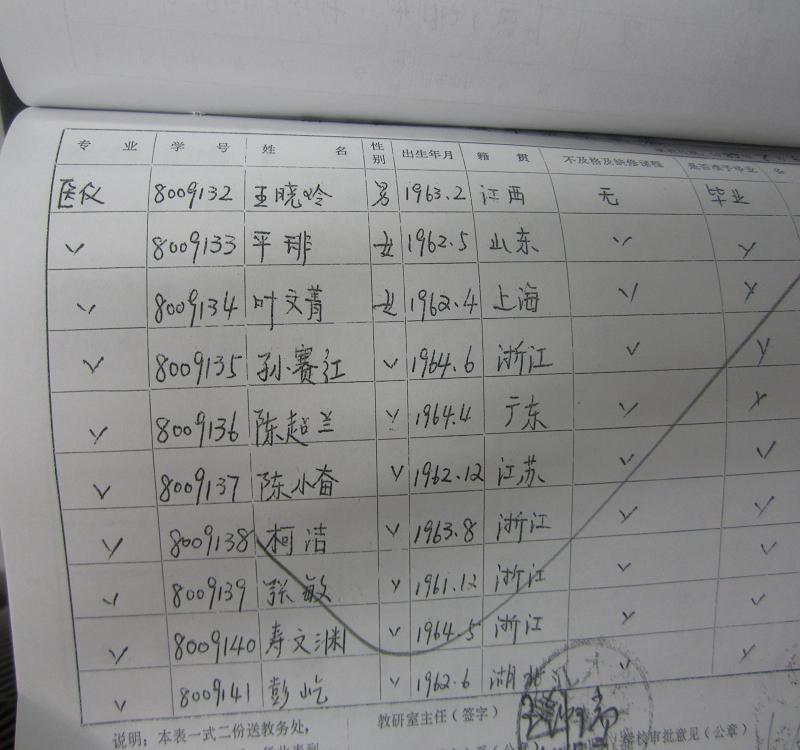 专 业 学 号 姓 名 性别 出生年月 籍 贯 不及格及缺修课程 是否准予毕业
医仪 8009132 王晓吟 男 1963.2 江西 无 毕业
√ 8009133 平琲 女 1962.5 山东 √ √
√ 8009134 叶文菁 女 1962.4 上海 √ √
√ 8009135 孙赛红 √ 1964.6 浙江 √ √
√ 8009136 陈超兰 √ 1964.4 广东 √ √
√ 8009137 陈小奋 √ 1962.12 江苏 √ √
√ 8009138 柯洁 √ 1963.8 浙江 √ √
√ 8009139 张敏 √ 1961.12 浙江 √ √
√ 8009140 寿文渊 √ 1964.5 浙江 √ √
√ 8009141 彭屹 √ 1962.6 湖北 √ √
说明：本表一式二份送教务处， 教研室主任（签字） 校审批意见（公章）